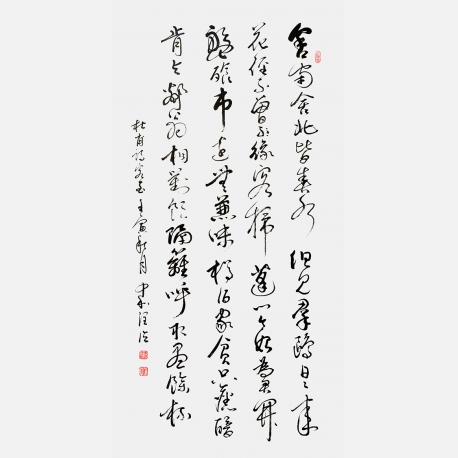 舍南舍北皆春水 但見羣鷗日日來
花徑不曾緣客掃 蓬門今始為君開
盤飧市遠無兼味 樽酒家貧只舊醅
肯與鄰翁相對飲 隔籬呼取盡餘杯
杜甫詩客至 壬寅秋月